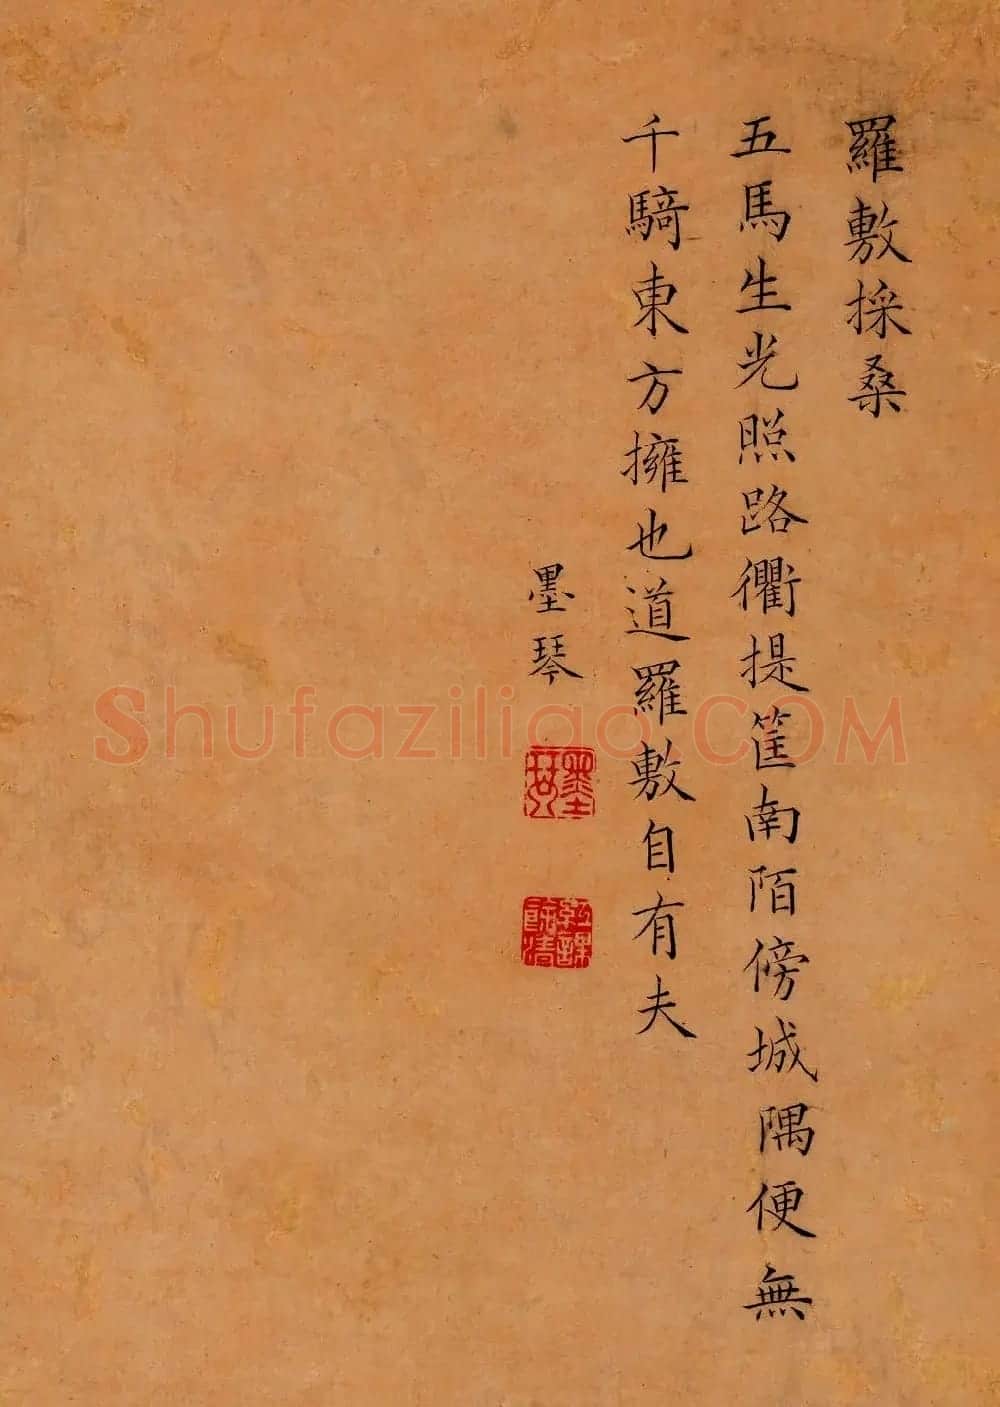 羅敷採桑
五馬生光照路衢提筐南陌傍城隅便無
千騎東方擁也道羅敷自有夫
墨琴
墨琴
Shufaziliao.COM